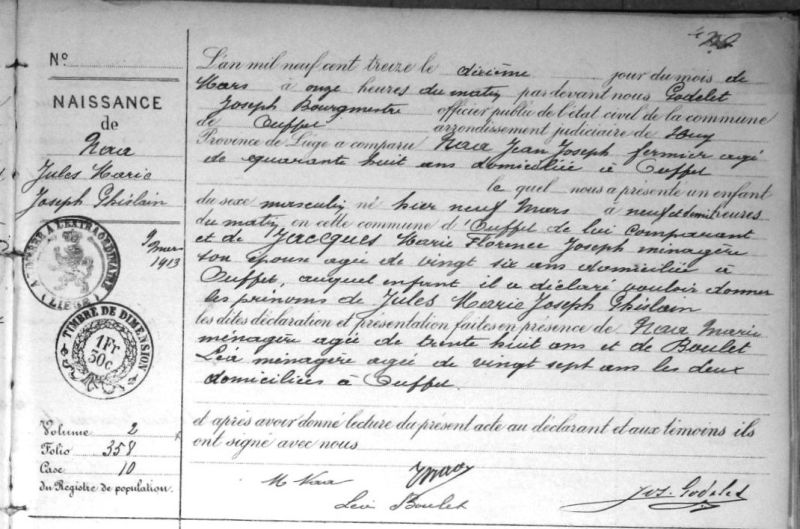 Nº
NAISSANCE
de
Naa
Jules Marie
Joseph Ghislain
9 Mars
1913
A L'EXTRAORDINAIRE
(LIÈGE)
TIMBRE DE DIMENSION
1 Fr
50c
Volume 2
Folio 358
Case 10
du Registre de population.
L'an mil neuf cent treize le dixième jour du mois de
Mars à onze heures du matin par devant nous Godelet
Joseph Bourgmestre officier public de l'état civil de la commune
de Ouffet arrondissement judiciaire de Huy
Province de Liège a comparu Naa Jean Joseph fermier agé
de quarante huit ans domicilié à Ouffet
le quel nous a présenté un enfant
du sexe masculin né hier neuf Mars à neuf et demi heures
du matin en cette commune d'Ouffet de lui comparant
et de Jacques Marie Florence Joseph ménagère
son épouse agée de vingt six ans domiciliée à
Ouffet, auquel enfant il a déclaré vouloir donner
les prénoms de Jules Marie Joseph Ghislain
les dites déclaration et présentation faites en présence de Naa Marie
ménagère agée de trente huit ans et de Boulet
Léa ménagère agée de vingt sept ans les deux
domiciliées à Ouffet.
et après avoir donné lecture du présent acte au déclarant et aux témoins ils
ont signé avec nous
M Naa
Léa Boulet
Jos. Godelet